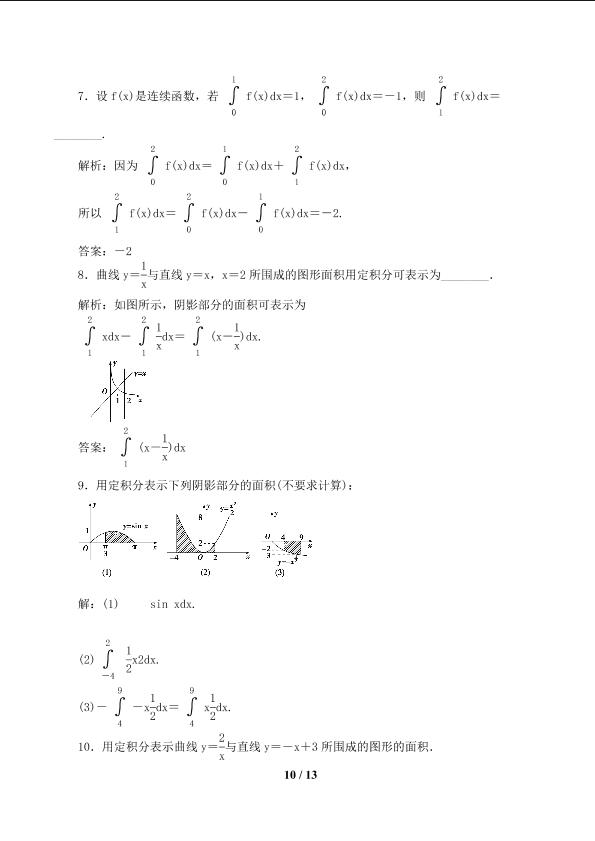 7．设 f(x)是连续函数，若 ∫₀¹ f(x)dx＝1，∫₀² f(x)dx＝－1，则 ∫₁² f(x)dx＝
________．
解析：因为 ∫₀² f(x)dx＝ ∫₀¹ f(x)dx＋ ∫₁² f(x)dx，
所以 ∫₁² f(x)dx＝ ∫₀² f(x)dx－ ∫₀¹ f(x)dx＝－2.
答案：－2
8．曲线 y＝1/x与直线 y＝x，x＝2 所围成的图形面积用定积分可表示为________．
解析：如图所示，阴影部分的面积可表示为
∫₁² xdx－ ∫₁² 1/x dx＝ ∫₁² (x－1/x)dx.
y
y=x
O 1 2 x
答案： ∫₁² (x－1/x)dx
9．用定积分表示下列阴影部分的面积(不要求计算)：
y y=sin x 1 O π/3 π x
y y=x²/2 8 2 －4 O 2 x
y O 4 9 x －2 －3
(1) (2) (3)
解：(1) sin xdx.
(2) ∫₋₄² 1/2 x2dx.
(3)－ ∫₄⁹ －x 1/2 dx＝ ∫₄⁹ x 1/2 dx.
10．用定积分表示曲线 y＝2/x与直线 y＝－x＋3 所围成的图形的面积．
10 / 13